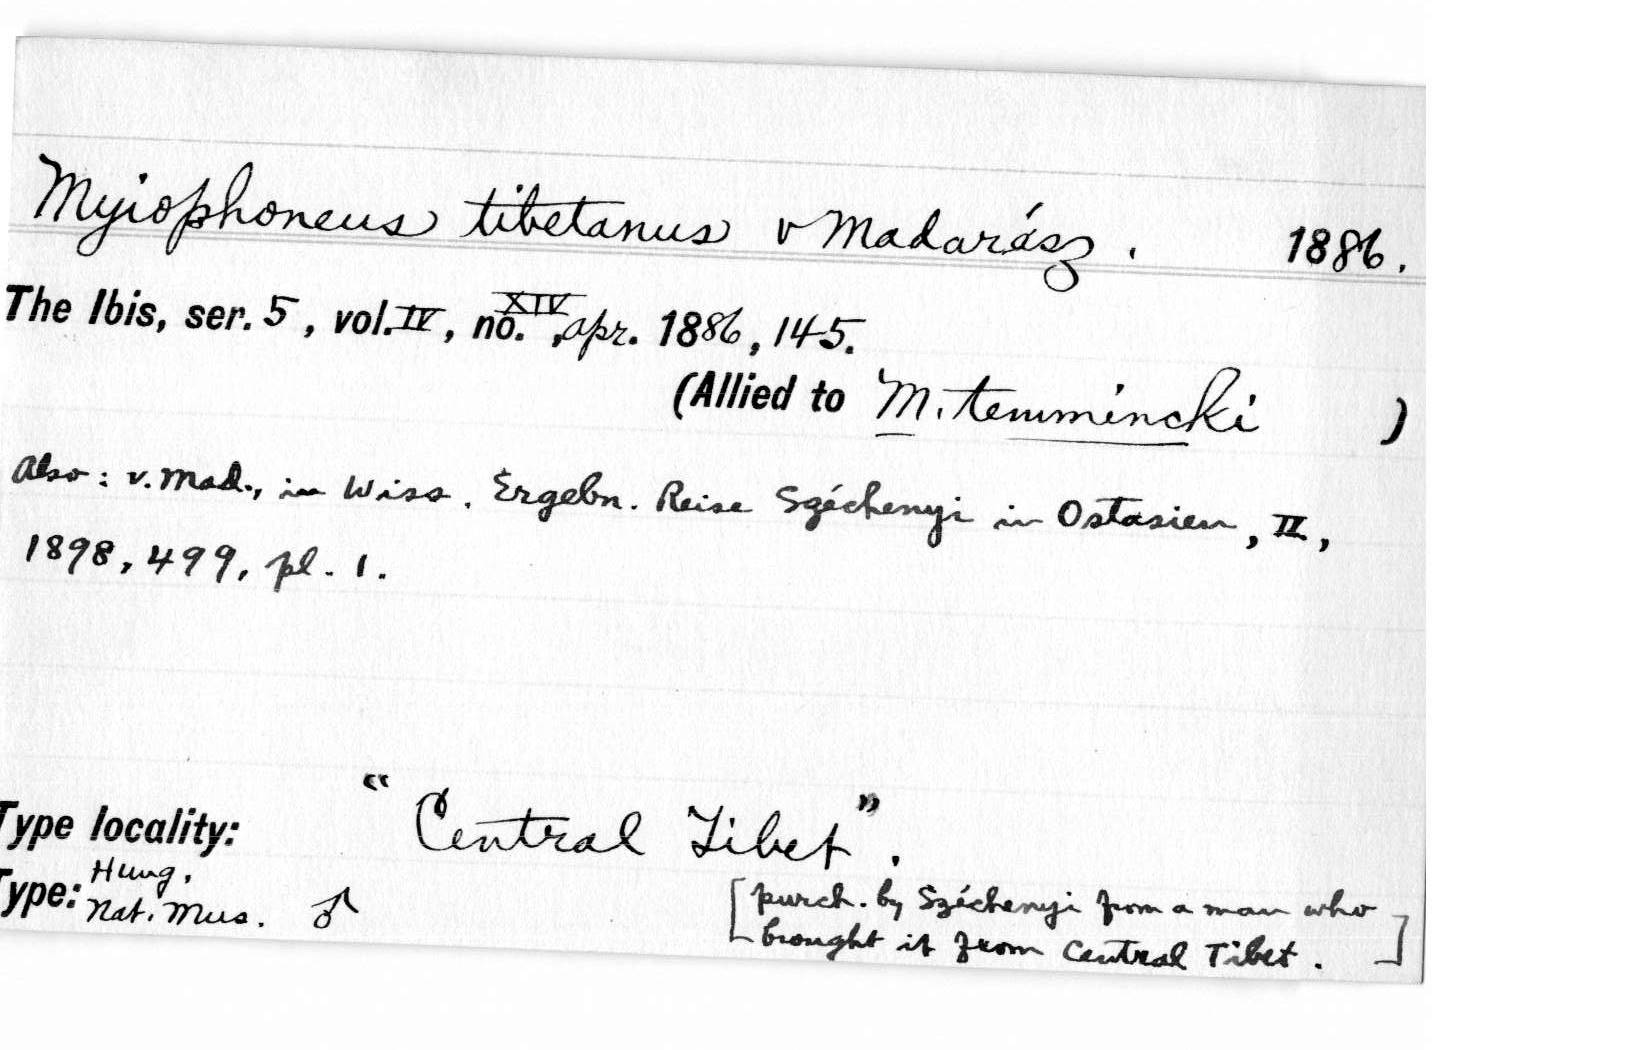 Myiophoneus tibetanus v Madarász. 1886.
The Ibis, ser. 5, vol. IV, no. XIV, apr. 1886, 145.
(Allied to M. temmincki )
Also: v. Mad., in Wiss. Ergebn. Reise Széchenyi in Ostasien, II,
1898, 499, pl. 1.
Type locality: "Central Tibet".
Type: Hung.
Nat. Mus. ♂
[purch. by Széchenyi from a man who
brought it from Central Tibet.]